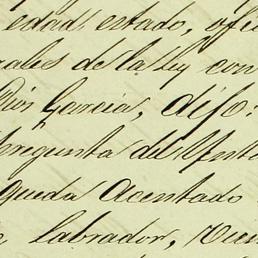 edad, estado, ofi
rales de la Ley con
Pios Garcia, dijo:
pregunta del Ynte
queda acentado
labrador, vein